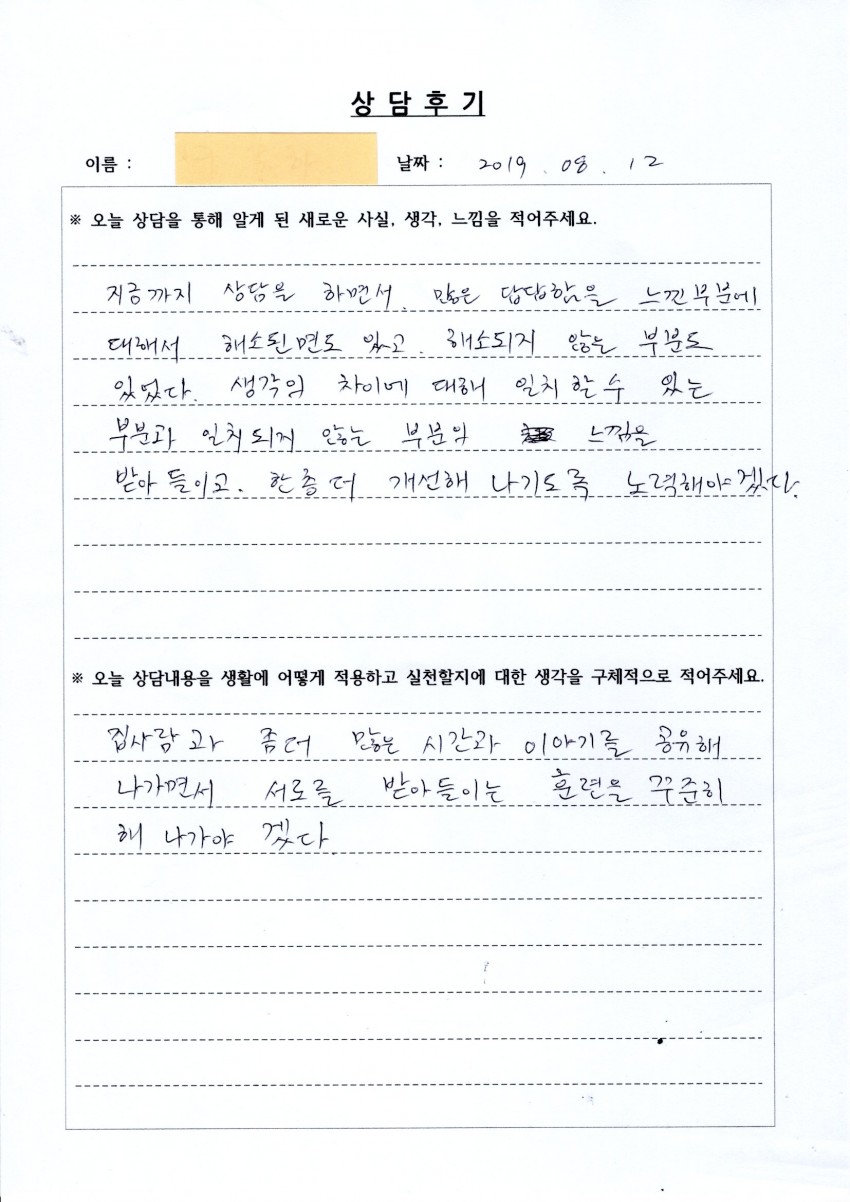 상 담 후 기
이름 : 날짜 : 2019 . 08 . 12
※ 오늘 상담을 통해 알게 된 새로운 사실, 생각, 느낌을 적어주세요.
지금까지 상담을 하면서, 많은 답답함을 느낀부분에
대해서 해소된면도 있고, 해소되지 않는 부분도
있었다. 생각의 차이에 대해 일치 할 수 있는
부분과 일치되지 않는 부분의 느낌을
받아 들이고, 한층 더 개선해 나가도록 노력해야겠다.
※ 오늘 상담내용을 생활에 어떻게 적용하고 실천할지에 대한 생각을 구체적으로 적어주세요.
집사람과 좀더 많은 시간과 이야기를 공유해
나가면서 서로를 받아들이는 훈련을 꾸준히
해 나가야 겠다